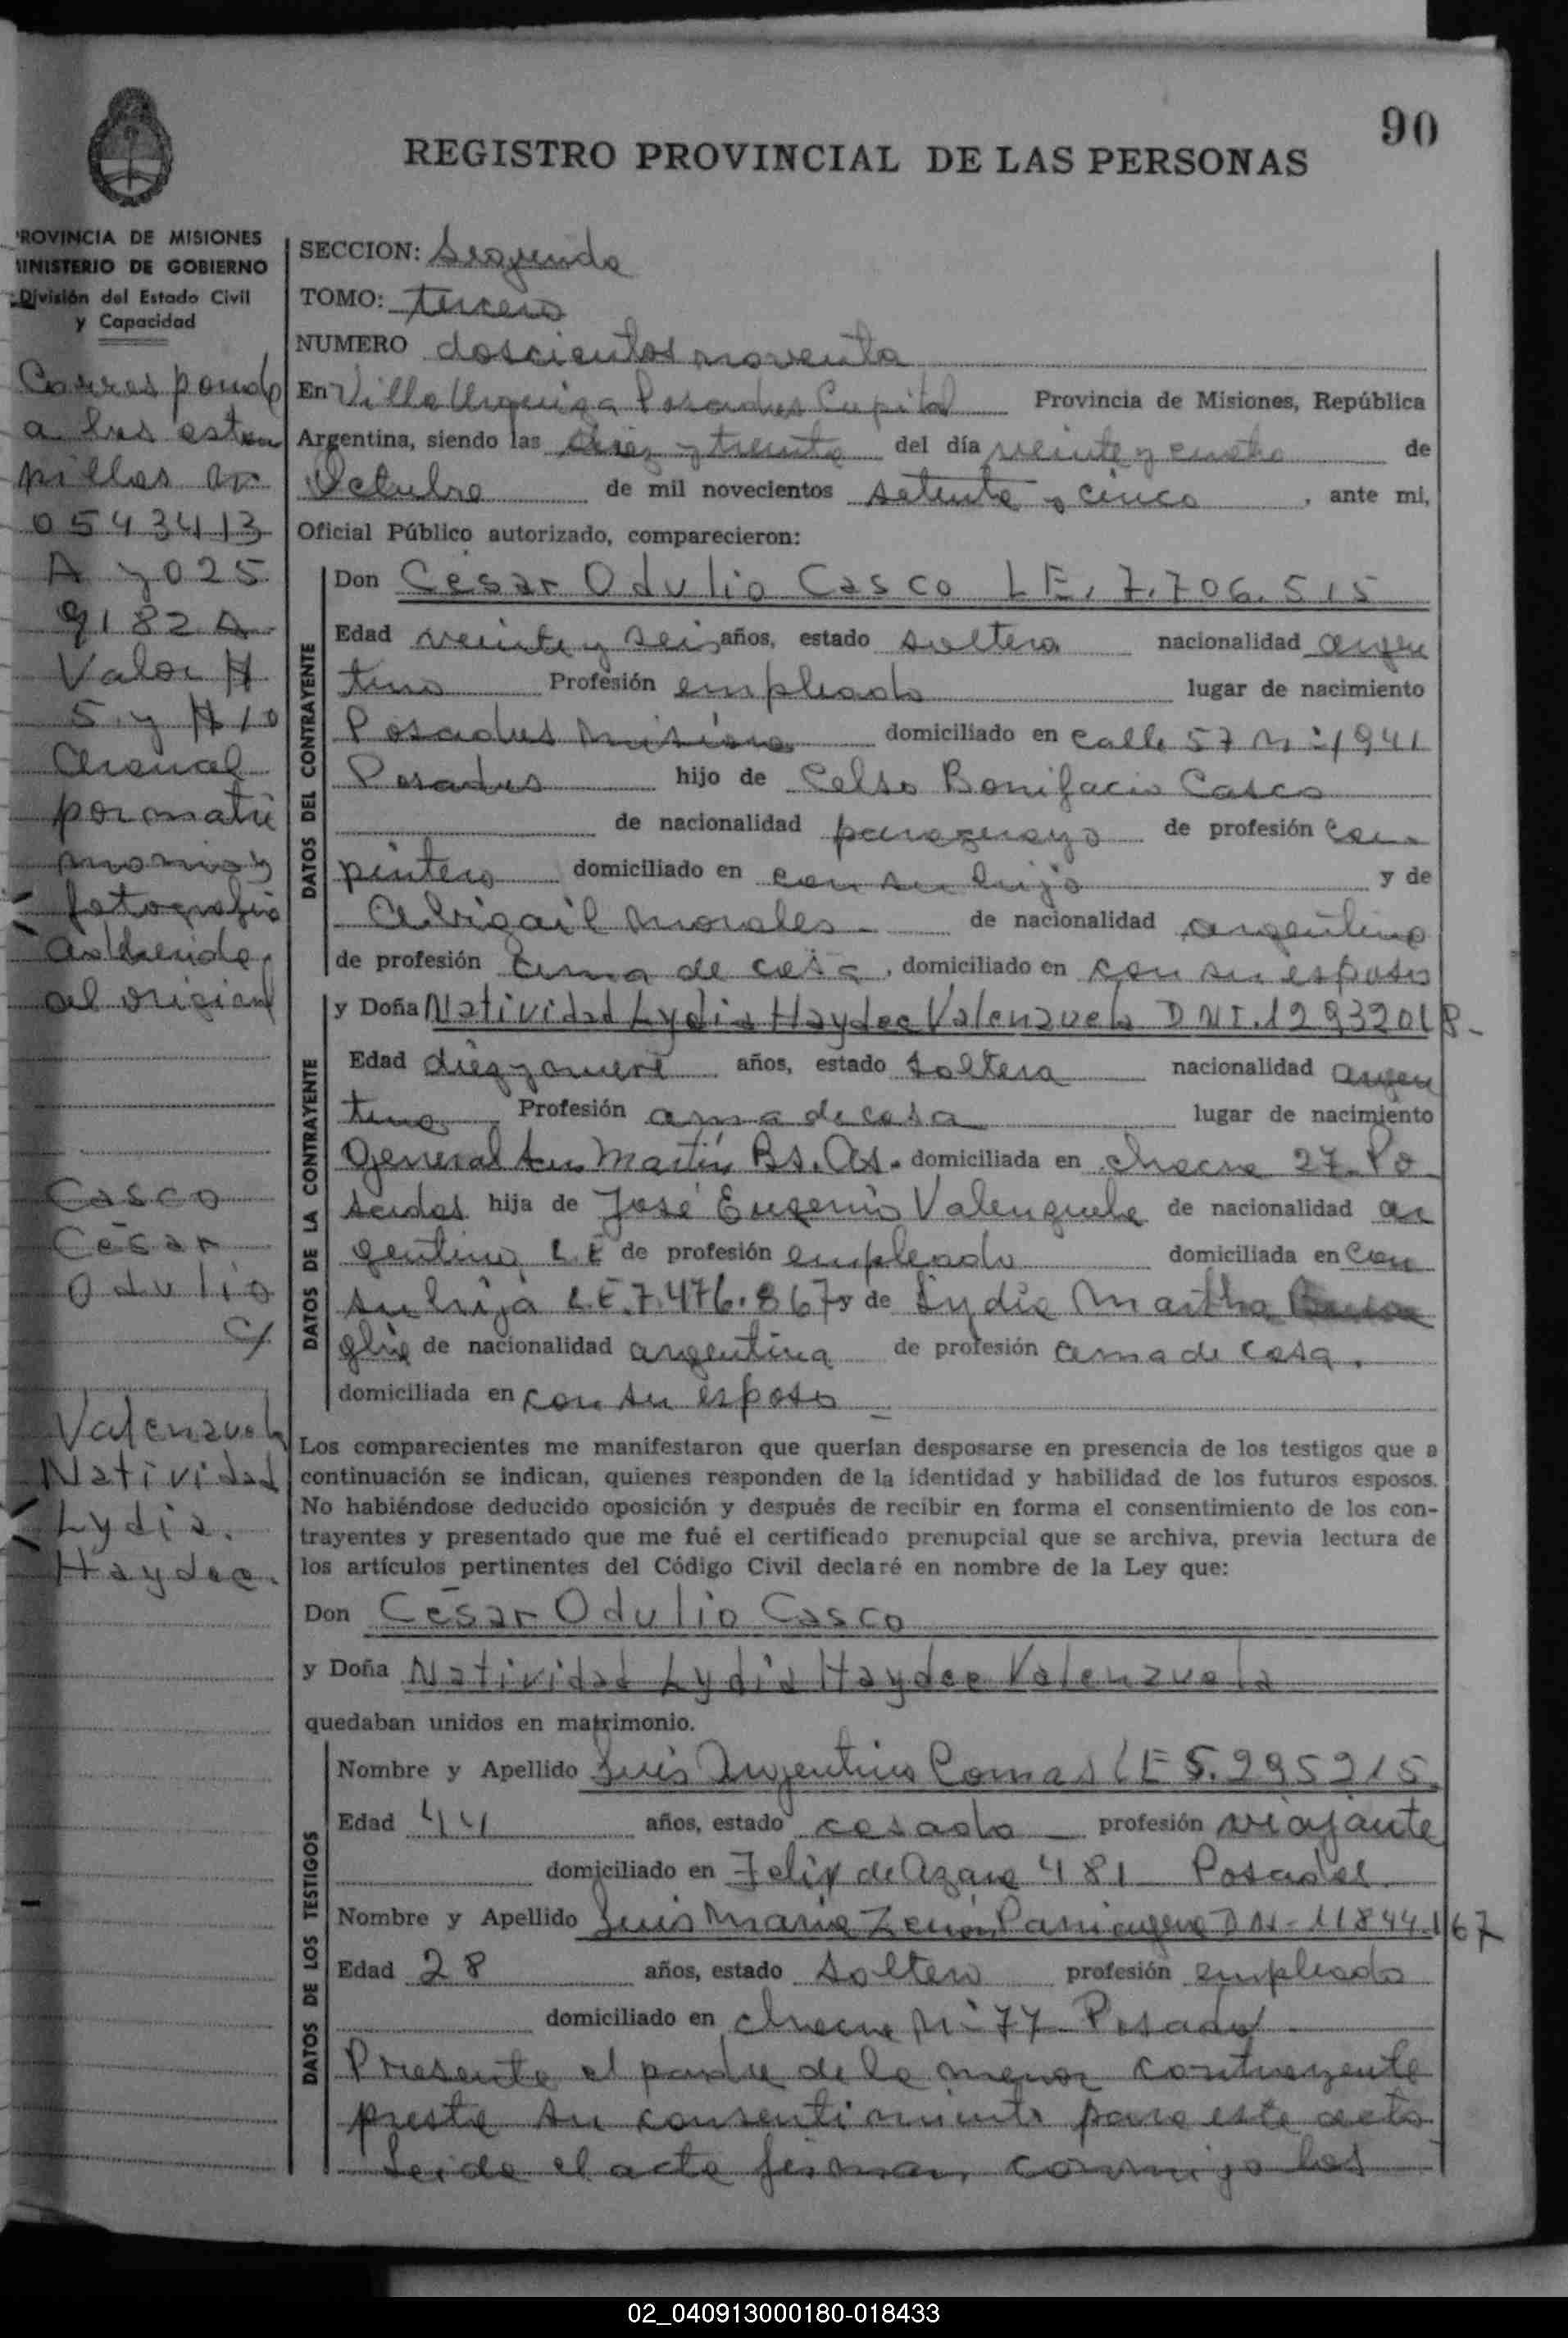 90
REGISTRO PROVINCIAL DE LAS PERSONAS
ROVINCIA DE MISIONES
MINISTERIO DE GOBIERNO
División del Estado Civil
y Capacidad
Corresponde
a las estam
pillas nº
0543413
A y 025
9182 A
Valor $
5 y $ 10
Arancel
por matri
monio y
fotografia
adherida
al original
Casco
César
Odulio
c/
Valenzuela
Natividad
Lydia
Haydee.
SECCION: Segunda
TOMO: tercero
NUMERO doscientos noventa
En Villa Urquiza Posadas Capital Provincia de Misiones, República
Argentina, siendo las diez y treinta del día veinte y cuatro de
Octubre de mil novecientos setenta y cinco, ante mi,
Oficial Público autorizado, comparecieron:
DATOS DEL CONTRAYENTE
Don César Odulio Casco LE. 7.706.515
Edad veinte y seis años, estado soltero nacionalidad argen
tino Profesión empleado lugar de nacimiento
Posadas Misiones domiciliado en calle 57 Nº 1941
Posadas hijo de Celso Bonifacio Casco
de nacionalidad paraguayo de profesión car
pintero domiciliado en con su hijo y de
Abigail Morales de nacionalidad argentina
de profesión ama de casa, domiciliado en con su esposo
DATOS DE LA CONTRAYENTE
y Doña Natividad Lydia Haydee Valenzuela DNI. 12932018-
Edad diez y nueve años, estado soltera nacionalidad argen
tina Profesión ama de casa lugar de nacimiento
General San Martín Bs. As. domiciliada en chacra 27- Po
sadas hija de José Eugenio Valenzuela de nacionalidad ar
gentino L E de profesión empleado domiciliada en con
su hija L.E. 7.476.867 y de Lydia Martha
glia de nacionalidad argentina de profesión ama de casa.
domiciliada en con su esposo
Los comparecientes me manifestaron que querían desposarse en presencia de los testigos que a
continuación se indican, quienes responden de la identidad y habilidad de los futuros esposos.
No habiéndose deducido oposición y después de recibir en forma el consentimiento de los con-
trayentes y presentado que me fué el certificado prenupcial que se archiva, previa lectura de
los artículos pertinentes del Código Civil declaré en nombre de la Ley que:
Don César Odulio Casco
y Doña Natividad Lydia Haydee Valenzuela
quedaban unidos en matrimonio.
DATOS DE LOS TESTIGOS
Nombre y Apellido Luis Argentino Comas LE 5.295215.
Edad 44 años, estado casado profesión viajante
domiciliado en Felix de Azara 481 Posadas.
Nombre y Apellido Luis Maria Zenón Paniagua DNI- 11844.167
Edad 28 años, estado soltero profesión empleado
domiciliado en chacra Nº 77- Posadas
Presente el padre de la menor contrayente
presta su consentimiento para este acto
Leida el acta firman conmigo los
02_040913000180-018433